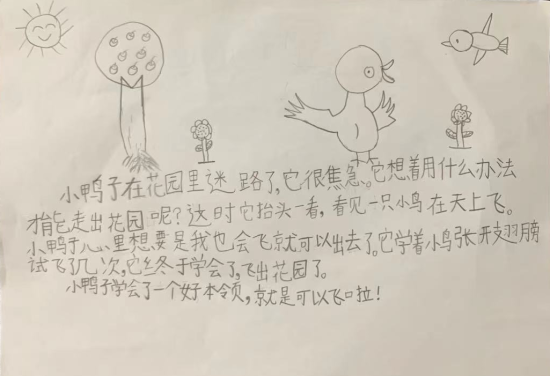 小鸭子在花园里迷路了,它很焦急。它想着用什么办法
才能走出花园呢?这时它抬头一看,看见一只小鸟在天上飞。
小鸭子心里想要是我也会飞就可以出去了。它学着小鸟张开翅膀
试飞了几次,它终于学会了,飞出花园了。
小鸭子学会了一个好本领,就是可以飞啦!